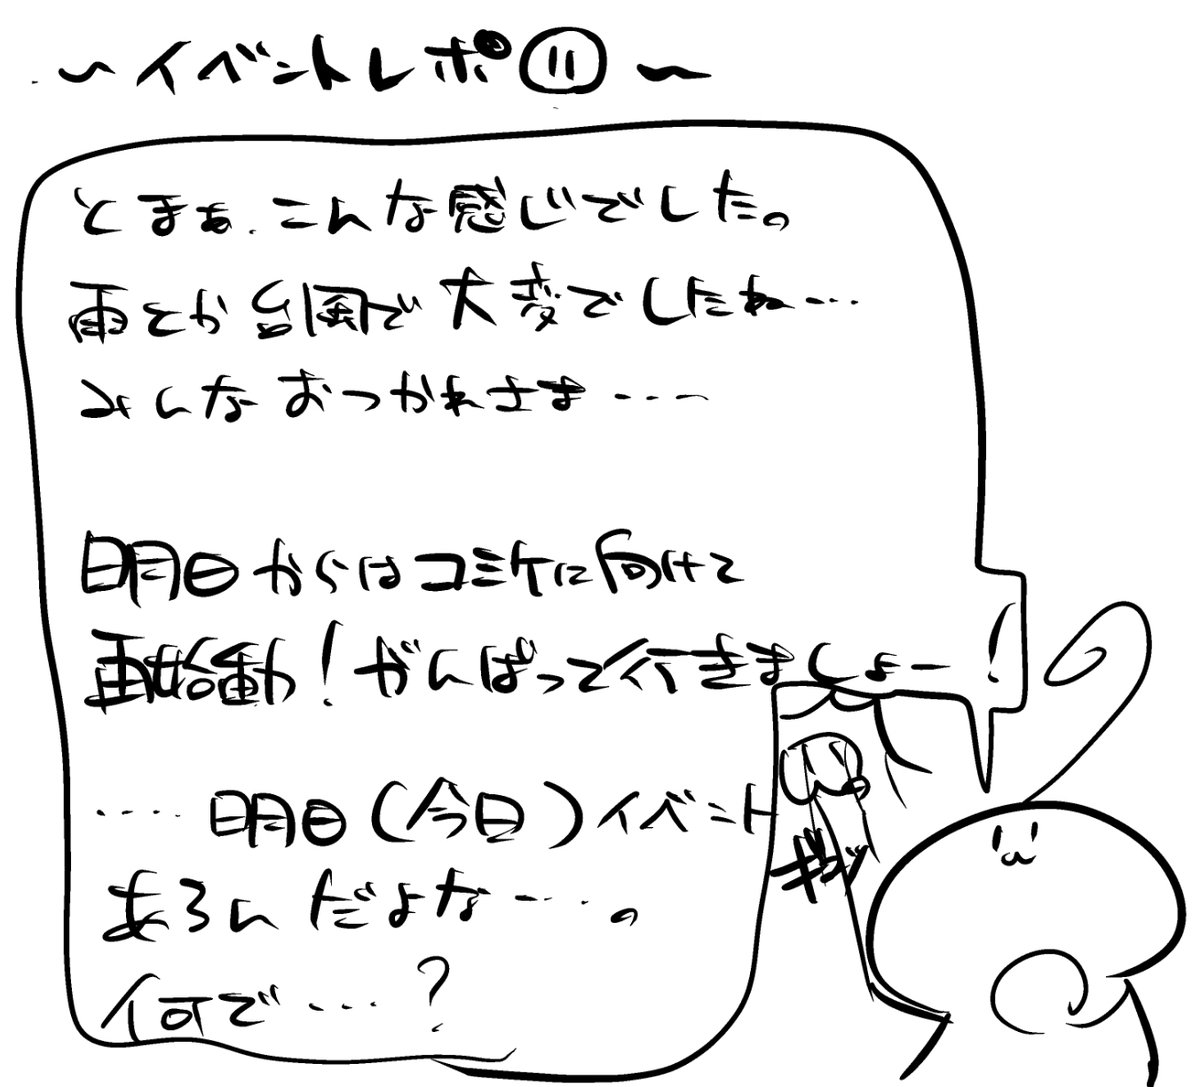 ～イベントレポ⑪～
とまぁ、こんな感じでした。
雨とか台風で大変でしたね…
みんなおつかれさま……
明日からはコミケに向けて
再始動！がんばって行きましょー！
……明日（今日）イベント
あるんだよな……。
何で……？